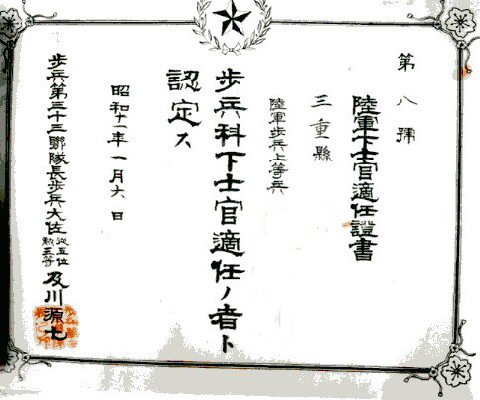 第八號
陸軍下士官適任證書
三重縣
陸軍步兵上等兵
步兵科下士官適任ノ者ト
認定ス
昭和十一年一月六日
步兵第三十三聯隊長步兵大佐 從五位 勲三等 及川源七